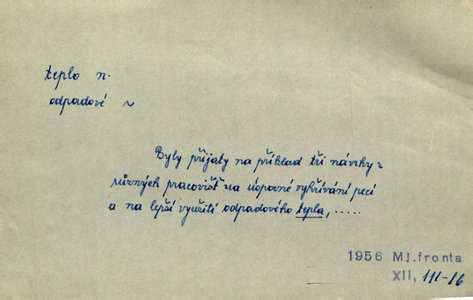 teplo n.
odpadové ~
Byly přijaty na příklad tři návrhy z
různých pracovišť na úsporné vyhřívání pecí
a na lepší využití odpadového tepla, .....
1956 Ml.fronta
XII, 111-16